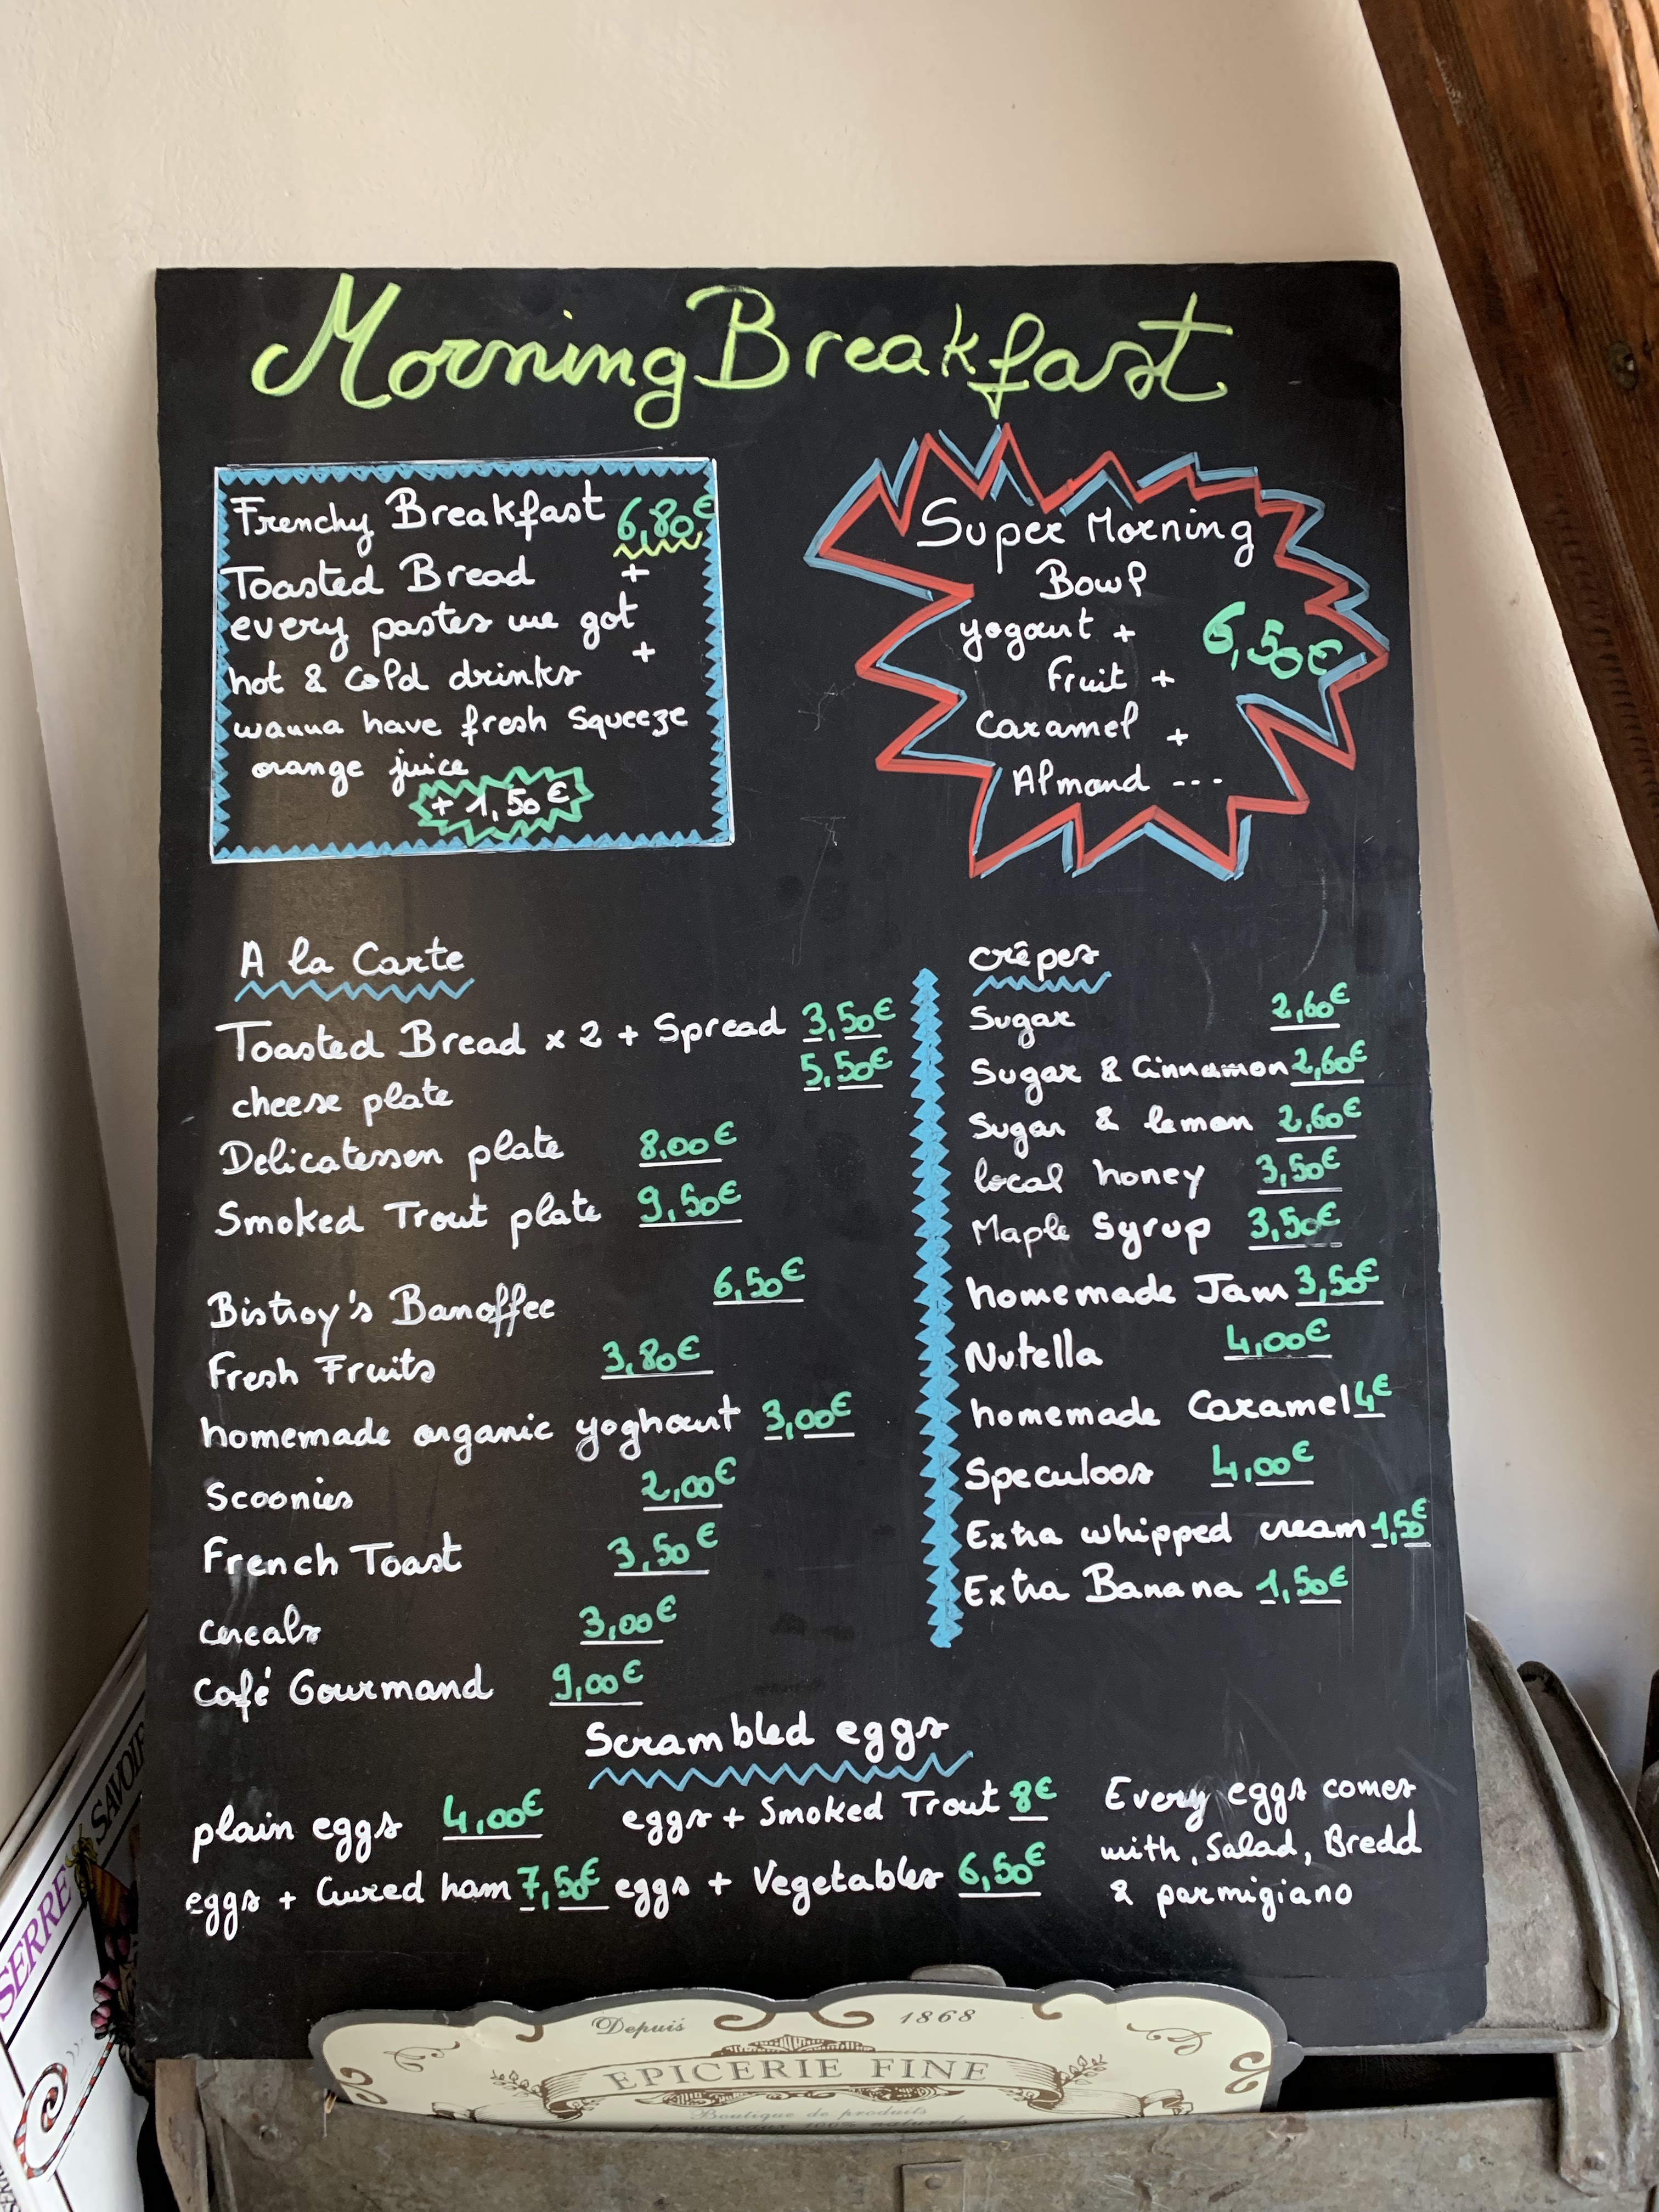 Morning Breakfast
Frenchy Breakfast 6,80€
Toasted Bread +
every pastes we got +
hot & cold drinks
wanna have fresh squeeze
orange juice
+ 1,50€
Super Morning
Bowl
yogourt +
6,50€
Fruit +
Caramel +
Almond ---
A la Carte
Toasted Bread x 2 + Spread 3,50€
cheese plate 5,50€
Delicatessen plate 8,00€
Smoked Trout plate 9,50€
Bistroy's Banoffee 6,50€
Fresh Fruits 3,80€
homemade organic yoghourt 3,00€
Scoonies 2,00€
French Toast 3,50€
cereals 3,00€
Café Gourmand 9,00€
crêpes
Sugar 2,60€
Sugar & Cinnamon 2,60€
Sugar & lemon 2,60€
local honey 3,50€
Maple Syrup 3,50€
homemade Jam 3,50€
Nutella 4,00€
homemade Caramel 4€
Speculoos 4,00€
Extra whipped cream 1,50€
Extra Banana 1,50€
Scrambled eggs
plain eggs 4,00€ eggs + Smoked Trout 8€
eggs + Cured ham 7,50€ eggs + Vegetables 6,50€
Every eggs comes
with, Salad, Bredd
& parmigiano
SAVOIR
SERRE
Depuis 1868
EPICERIE FINE
Boutique de produits